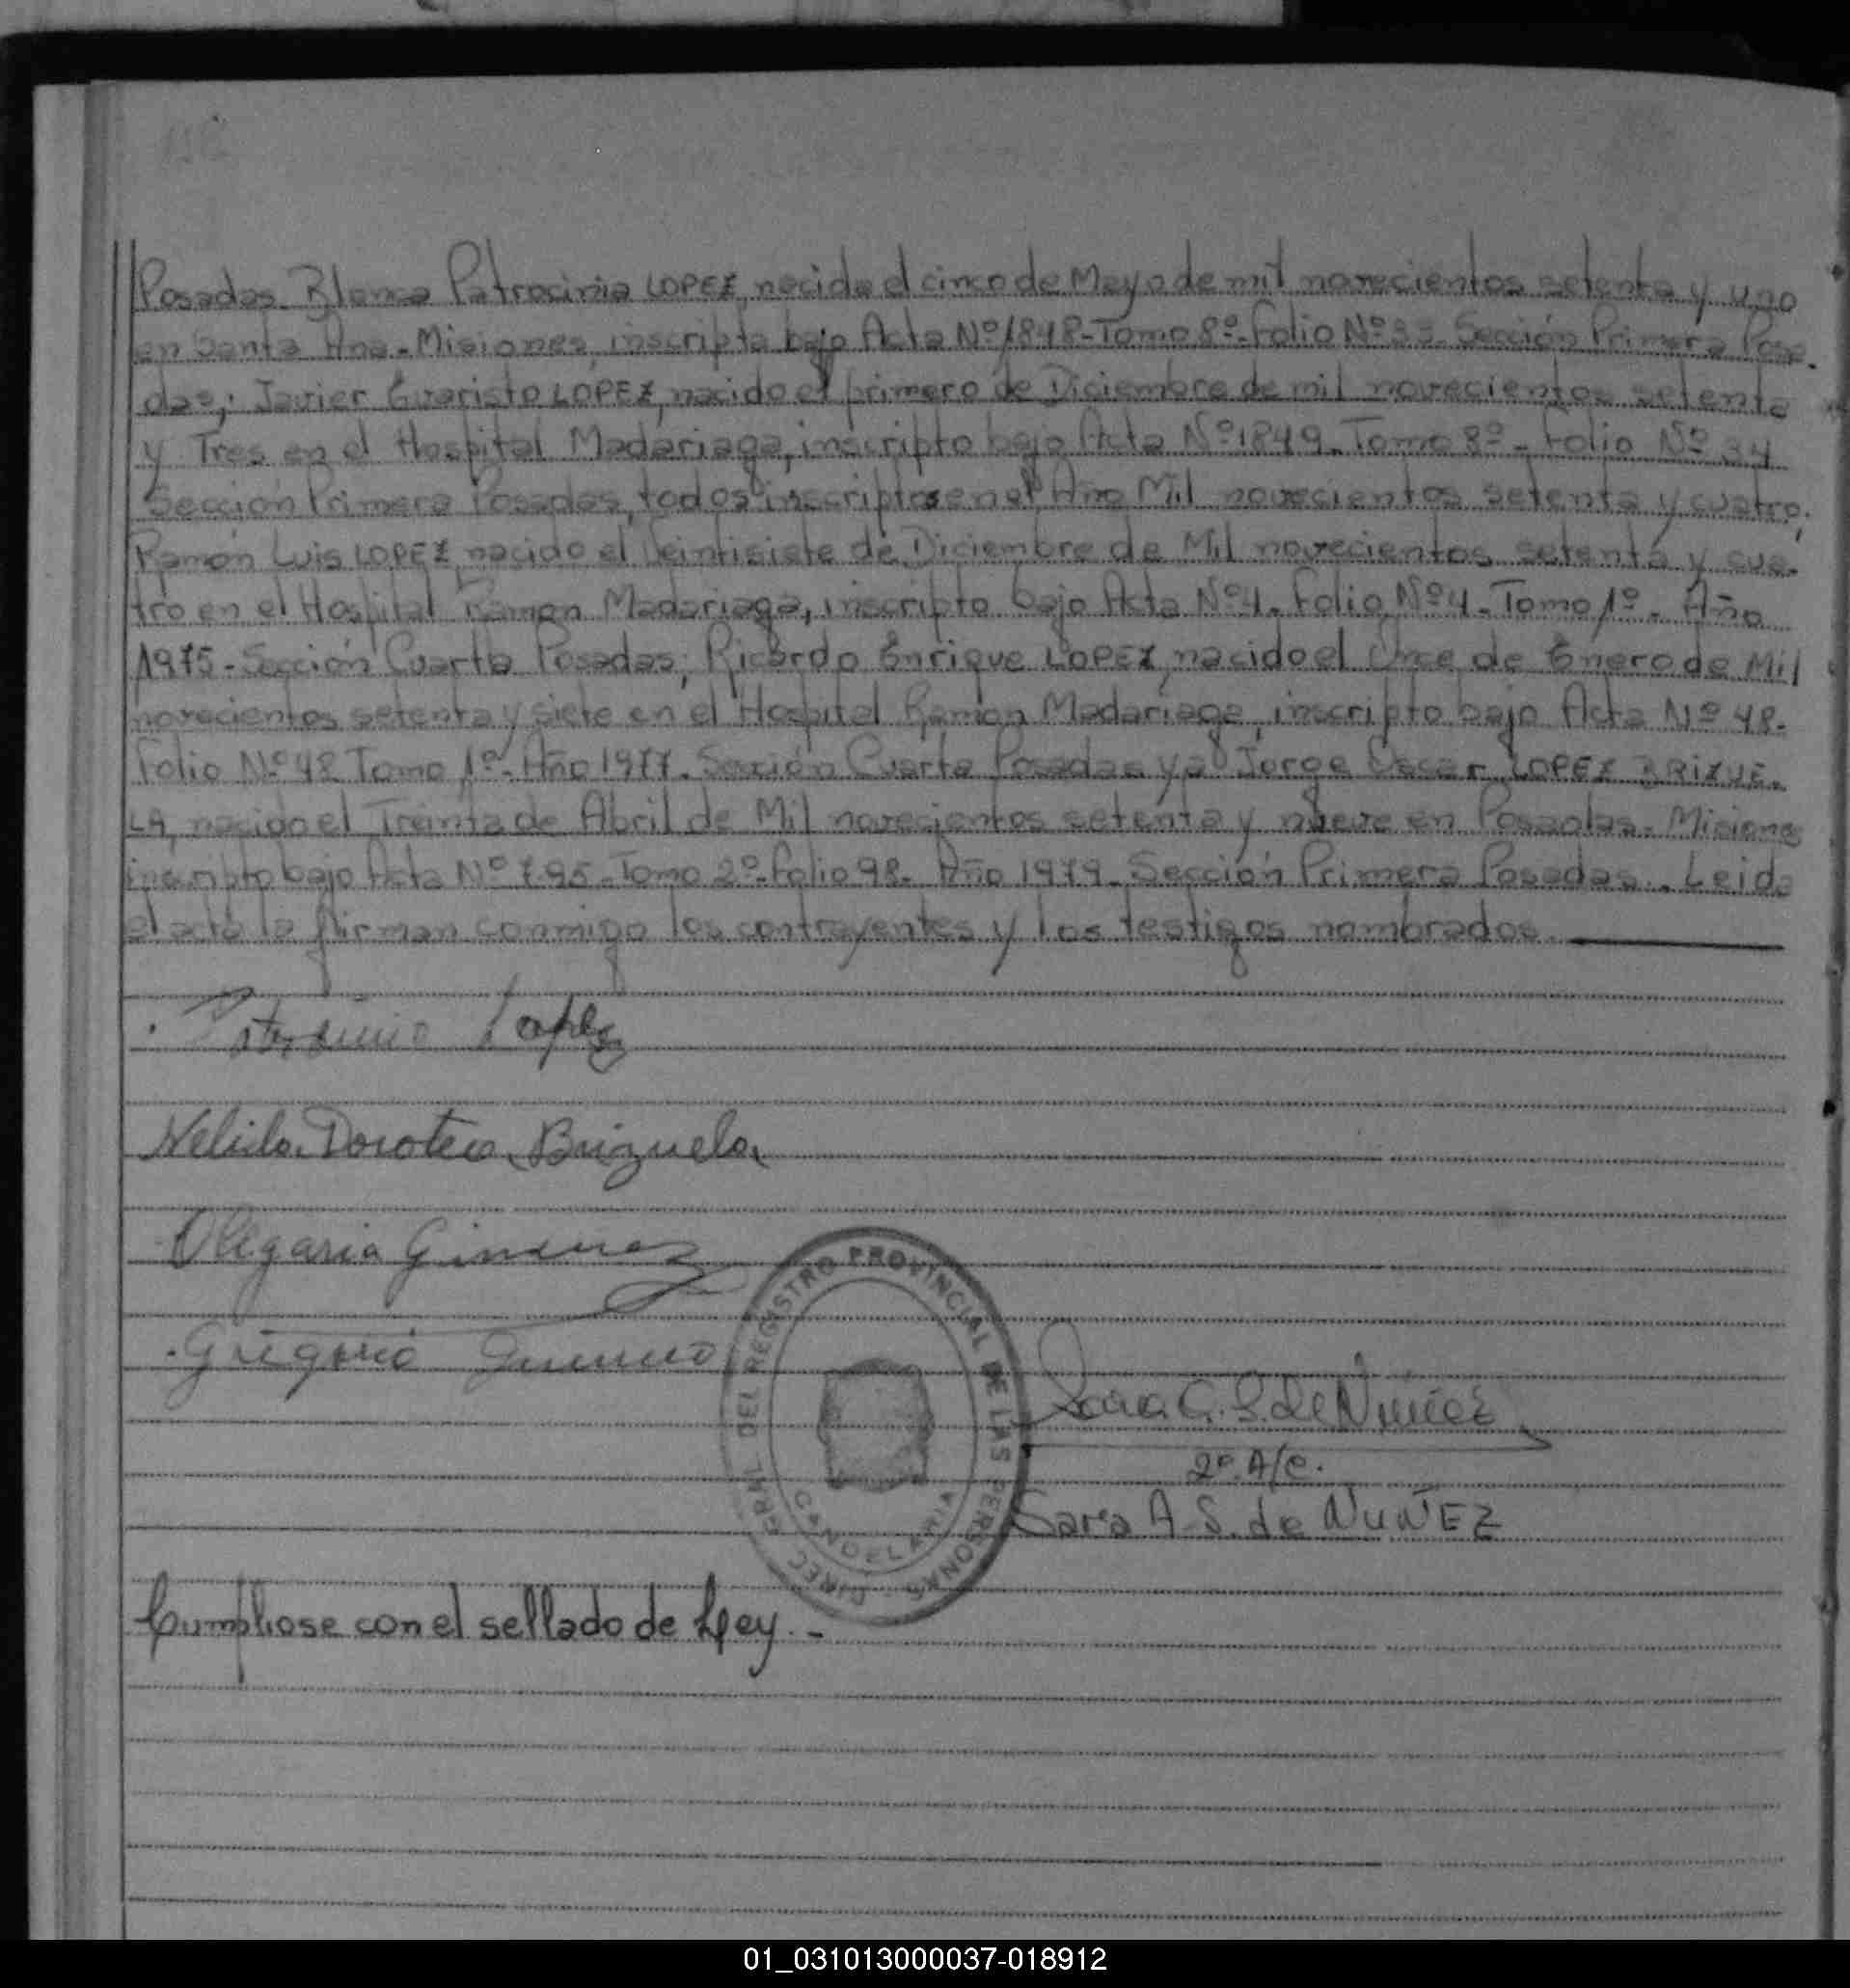 Posadas. Blanca Patrocinia LOPEZ, nacida el cinco de Mayo de mil novecientos setenta y uno
en Santa Ana - Misiones, inscripta bajo Acta Nº 1848 - Tomo 8º - Folio Nº 33. Sección Primera Posa-
das; Javier Evaristo LOPEZ, nacido el primero de Diciembre de mil novecientos setenta
y Tres en el Hospital Madariaga, inscripto bajo Acta Nº 1849. Tomo 8º - Folio Nº 34
Sección Primera Posadas, todos inscriptos en el Año Mil novecientos setenta y cuatro;
Ramón Luis LOPEZ nacido el Veintisiete de Diciembre de Mil novecientos setenta y cua-
tro en el Hospital Ramon Madariaga, inscripto bajo Acta Nº 4. Folio Nº 4. Tomo 1º. Año
1975 - Sección Cuarta Posadas; Ricardo Enrique LOPEZ, nacido el Once de Enero de Mil
novecientos setenta y siete en el Hospital Ramón Madariaga, inscripto bajo Acta Nº 48.
Folio Nº 48 Tomo 1º. Año 1977. Sección Cuarta Posadas y a Jorge Oscar LOPEZ BRIZUE-
LA, nacido el Treinta de Abril de Mil novecientos setenta y nueve en Posadas. Misiones
inscripto bajo Acta Nº 795 - Tomo 2º - Folio 98. Año 1979. Sección Primera Posadas. Leida
el acta la firman conmigo los contrayentes y los testigos nombrados.
Lopez
Nelida Dorotea Brizuela
Olegaria Gimenez
Gregorio
DIREC. GRAL. DEL REGISTRO PROVINCIAL DE LAS PERSONAS
CANDELARIA
Sara A. S. de Nuñez
2º A/C.
Sara A. S. de NUÑEZ
Cumpliose con el sellado de Ley. -
01_031013000037-018912